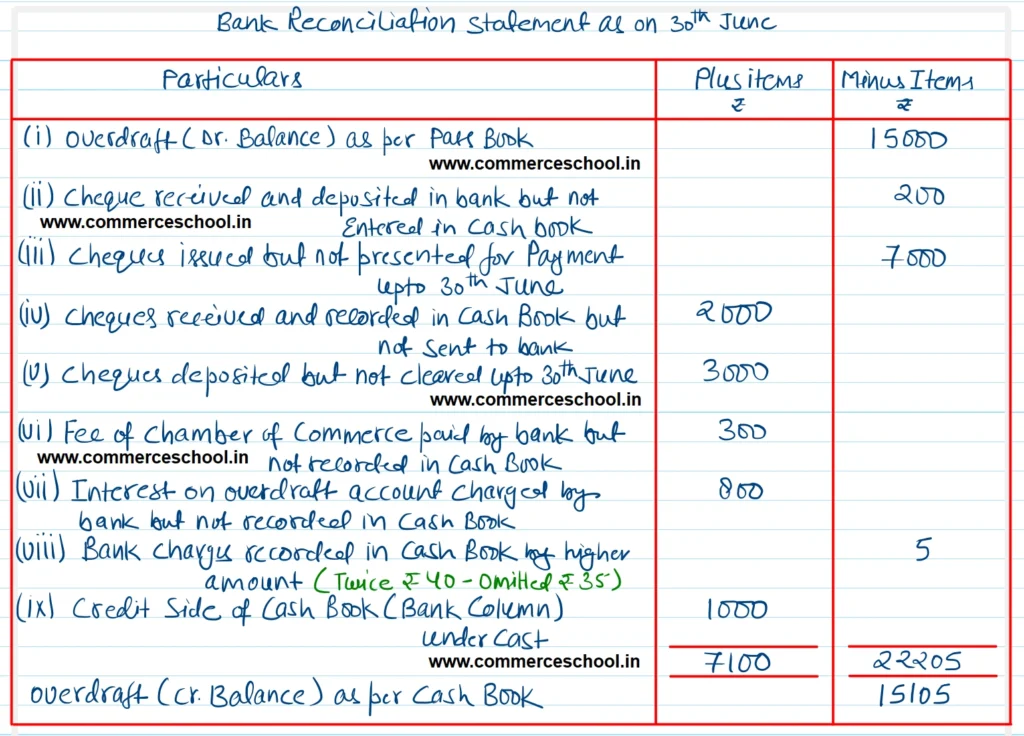 Bank Reconciliation Statement as on 30th June
Particulars Plus items Minus Items
₹ ₹
(i) Overdraft (Dr. Balance) as per Pass Book 15000
www.commerceschool.in
(ii) Cheque received and deposited in bank but not 200
www.commerceschool.in Entered in Cash book
(iii) Cheques issued but not presented for Payment 7000
upto 30th June
(iv) Cheques received and recorded in Cash Book but 2000
not sent to bank
(v) Cheques deposited but not cleared upto 30th June 3000
www.commerceschool.in
(vi) Fee of Chamber of Commerce paid by bank but 300
www.commerceschool.in not recorded in Cash Book
(vii) Interest on overdraft account charged by 800
bank but not recorded in Cash Book
(viii) Bank Charges recorded in Cash Book by higher 5
amount (Twice ₹40 - Omitted ₹35)
(ix) Credit Side of Cash Book (Bank Column) 1000
under Cast
www.commerceschool.in 7100 22205
overdraft (Cr. Balance) as per Cash Book 15105